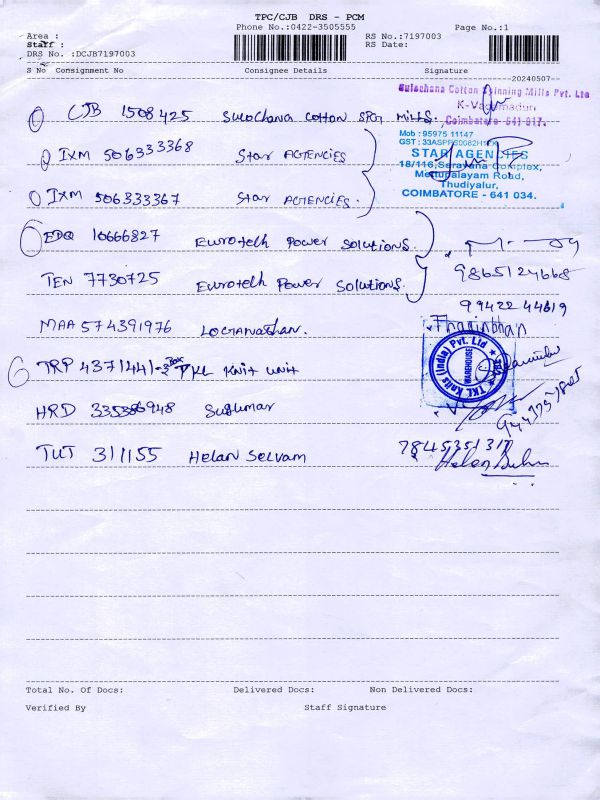 TPC/CJB DRS - PCM
Phone No.:0422-3505555
Page No.:1
Area :
RS No.:7197003
Staff :
RS Date:
DRS No. :DCJB7197003
S No Consignment No Consignee Details Signature
20240507
Sulochana Cotton Spinning Mills Pvt. Ltd
K-Vadamadurai
Coimbatore-641 017.
CJB 1508425 Sulochana Cotton SPG Mills.
Mob : 95975 11147
IXM 506333368 Star AGENCIES
STAR AGENCIES
18/116, Saravana Complex,
Mettupalayam Road,
Thudiyalur,
COIMBATORE - 641 034.
IXM 506333367 Star AGENCIES.
EDQ 10666827 Eurotech Power Solutions.
9865124668
TEN 7730725 Eurotech Power Solutions.
99422 44619
MAA 574391976 Loganathan.
TKL Knits (India) Pvt. Ltd
WAREHOUSE
TRP 4371441-3 Box TKL Knit Unit
HRD Sugumar
TUT 311155 Helan Selvam
7845351317
Total No. Of Docs: Delivered Docs: Non Delivered Docs:
Verified By Staff Signature